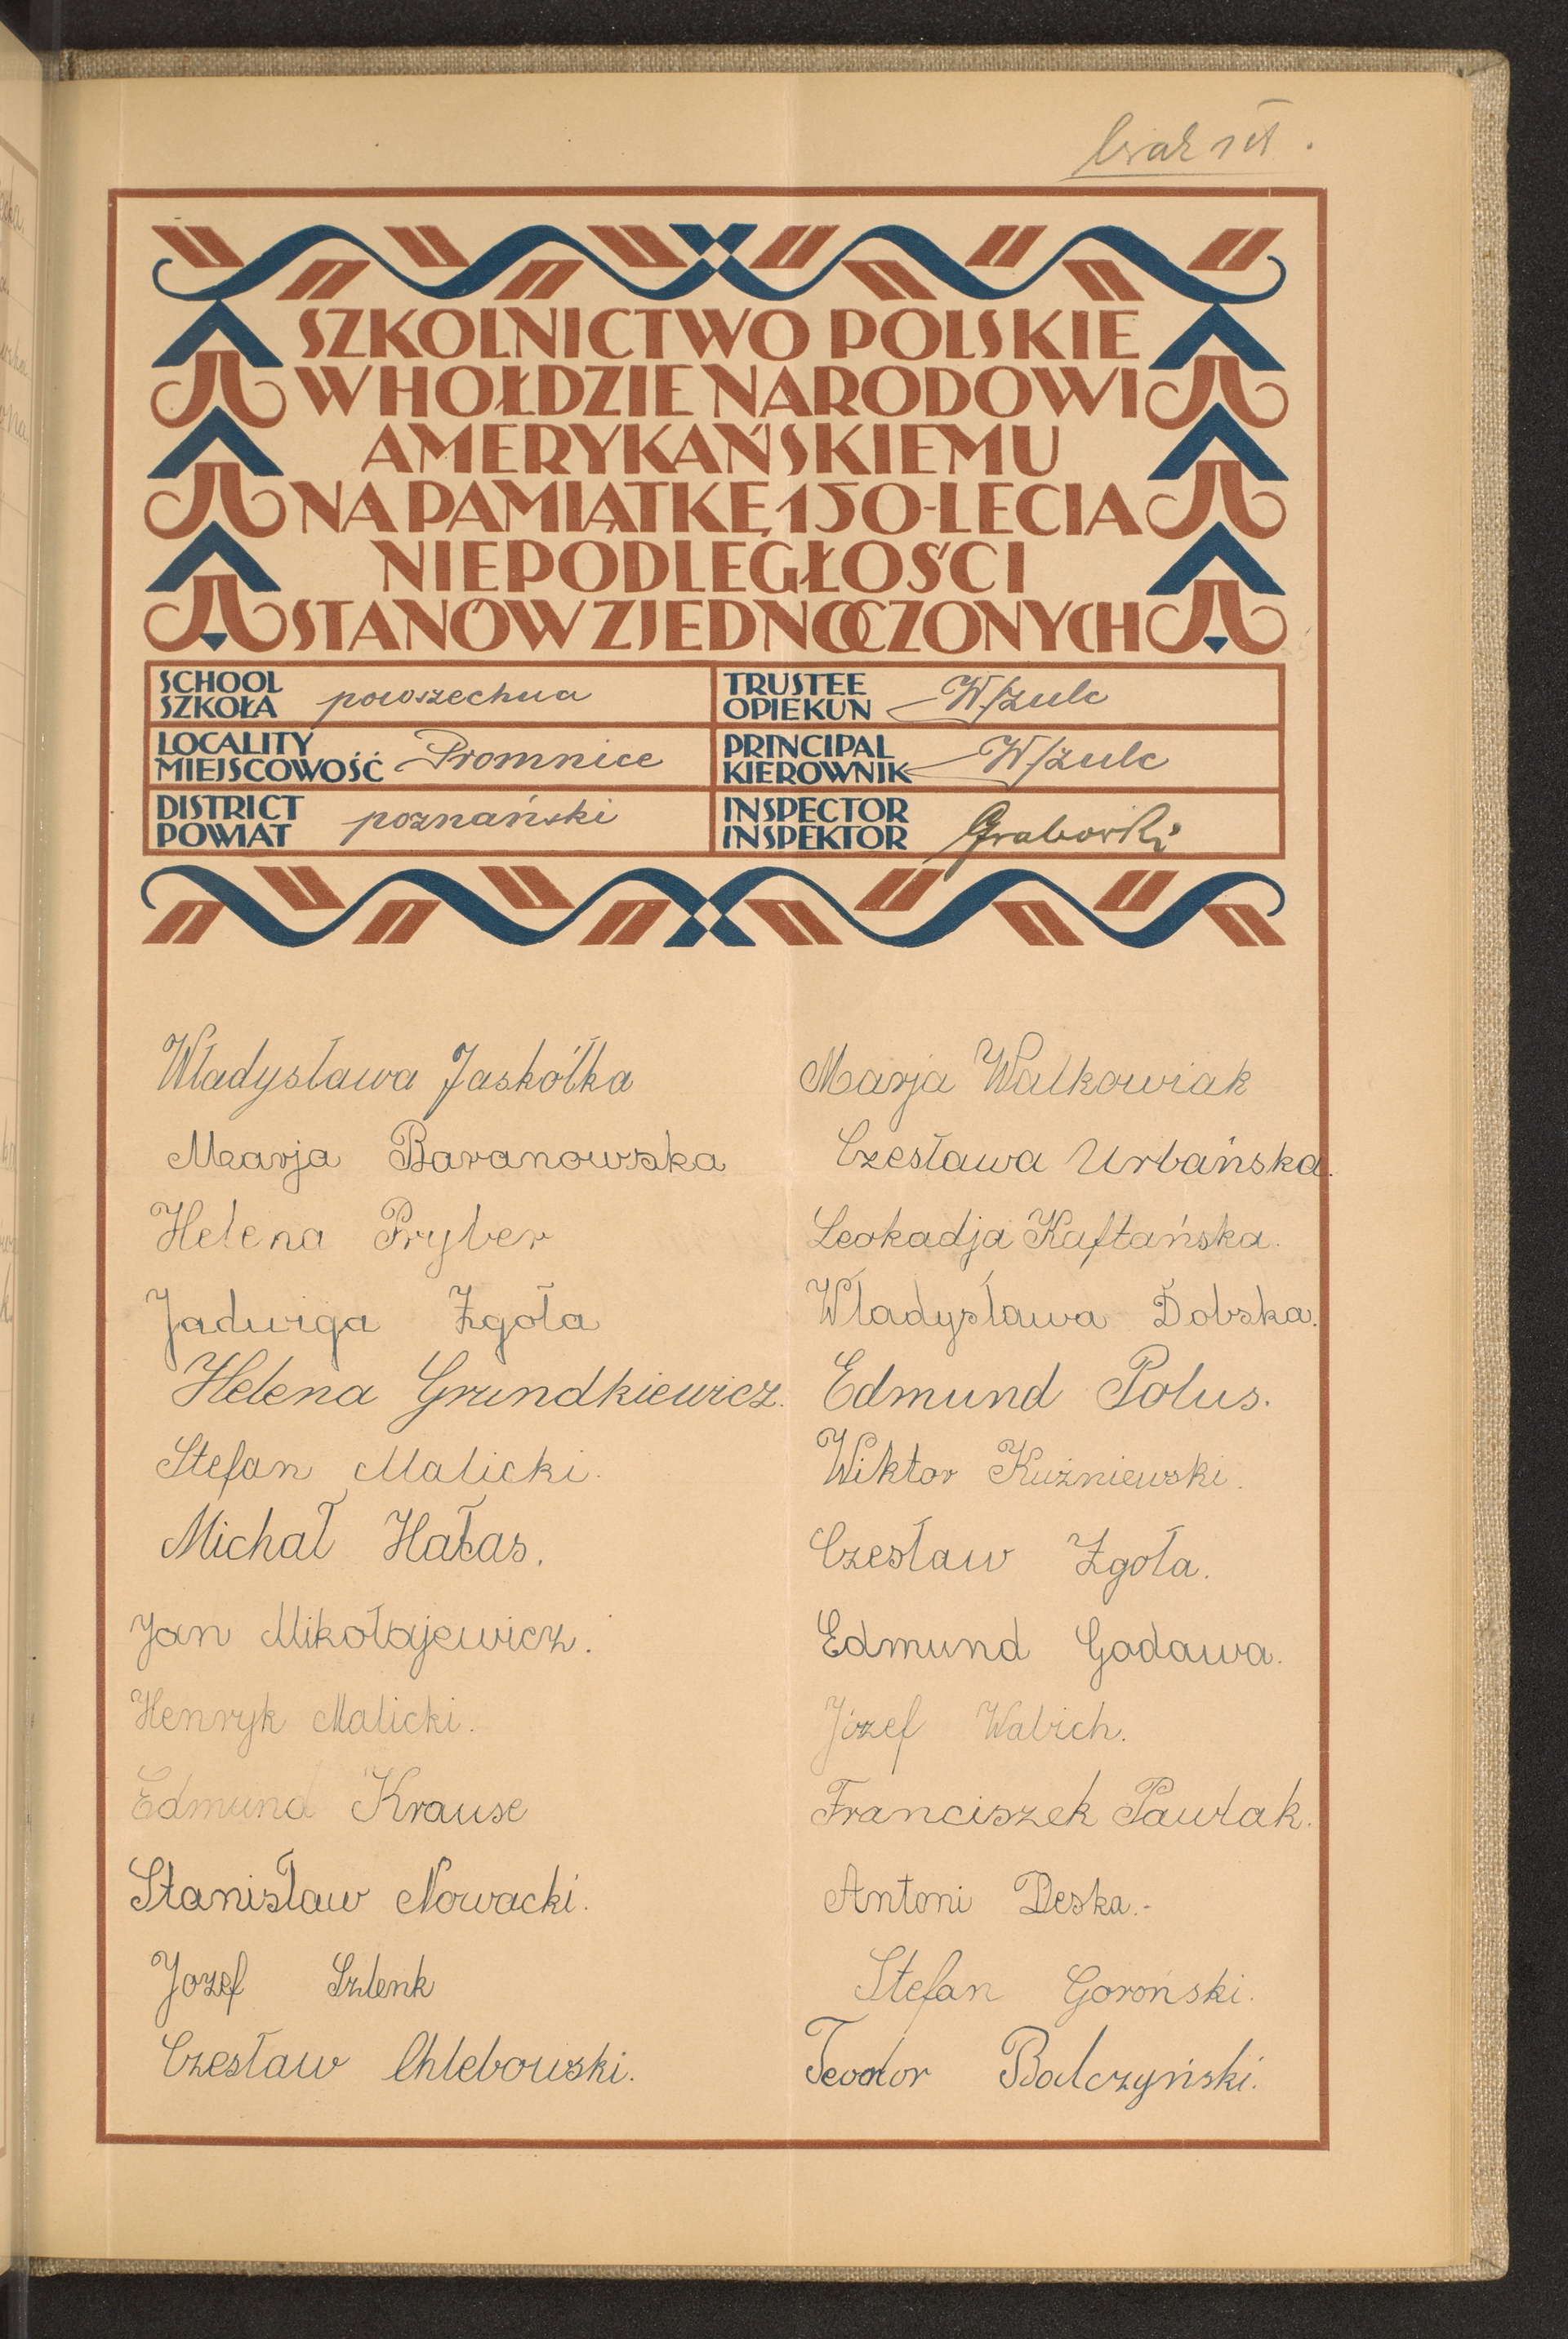 brak 1 zł.
SZKOLNICTWO POLSKIE
W HOŁDZIE NARODOWI
AMERYKAŃSKIEMU
NA PAMIĄTKĘ 150-LECIA
NIEPODLEGŁOŚCI
STANÓW ZJEDNOCZONYCH
SCHOOL
SZKOŁA powszechna
TRUSTEE
OPIEKUN WSzulc
LOCALITY
MIEJSCOWOŚĆ Promnice
PRINCIPAL
KIEROWNIK WSzulc
DISTRICT
POWIAT poznański
INSPECTOR
INSPEKTOR Grabowski
Władysława Jaskółka
Marja Baranowska
Helena Pryber
Jadwiga Zgoła
Helena Grundkiewicz.
Stefan Malicki.
Michał Hałas.
Jan Mikołajewicz.
Henryk Malicki.
Edmund Krause
Stanisław Nowacki.
Jozef Szlenk
Czesław Chlebowski.
Marja Walkowiak
Czesława Urbańska.
Leokadja Kaftańska.
Władysława Dobska.
Edmund Polus.
Wiktor Kuźniewski.
Czesław Zgoła.
Edmund Godawa.
Józef Walich.
Franciszek Pawlak.
Antoni Deska.-
Stefan Goroński.
Teodor Balczyński.